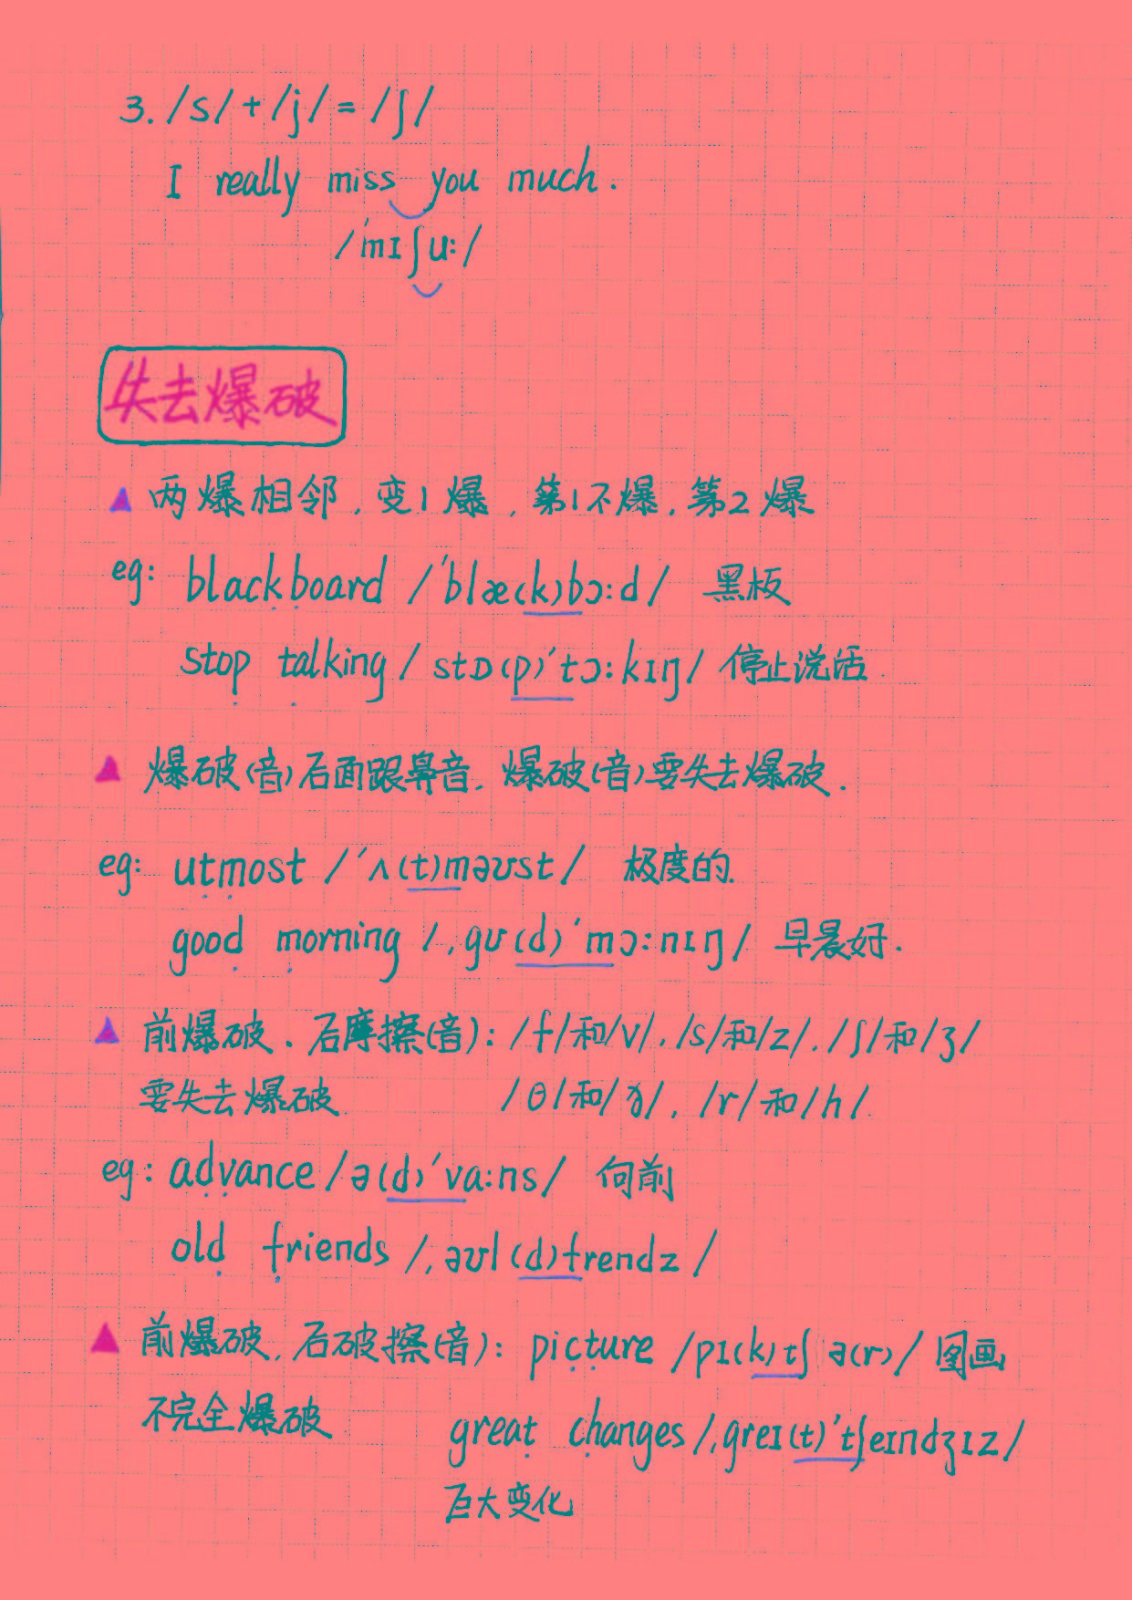 3. /s/+/j/=/ʃ/
I really miss you much.
/ˈmɪʃu:/
失去爆破
▲ 两爆相邻,变1爆,第1不爆,第2爆
eg: blackboard /ˈblæ(k)bɔ:d/ 黑板
stop talking /stɒ(p)ˈtɔ:kɪŋ/ 停止说话
▲ 爆破(音)后面跟鼻音,爆破(音)要失去爆破.
eg: utmost /ˈʌ(t)məʊst/ 极度的.
good morning /ˌgʊ(d)ˈmɔ:nɪŋ/ 早晨好.
▲ 前爆破、后摩擦(音): /f/和/v/,/s/和/z/,/ʃ/和/ʒ/
要失去爆破 /θ/和/ð/, /r/和/h/.
eg: advance /ə(d)ˈva:ns/ 向前
old friends /ˌəʊl(d)frendz/
▲ 前爆破,后破擦(音): picture /pɪ(k)tʃə(r)/ 图画
不完全爆破 great changes /ˌgreɪ(t)ˈtʃeɪndʒɪz/
巨大变化